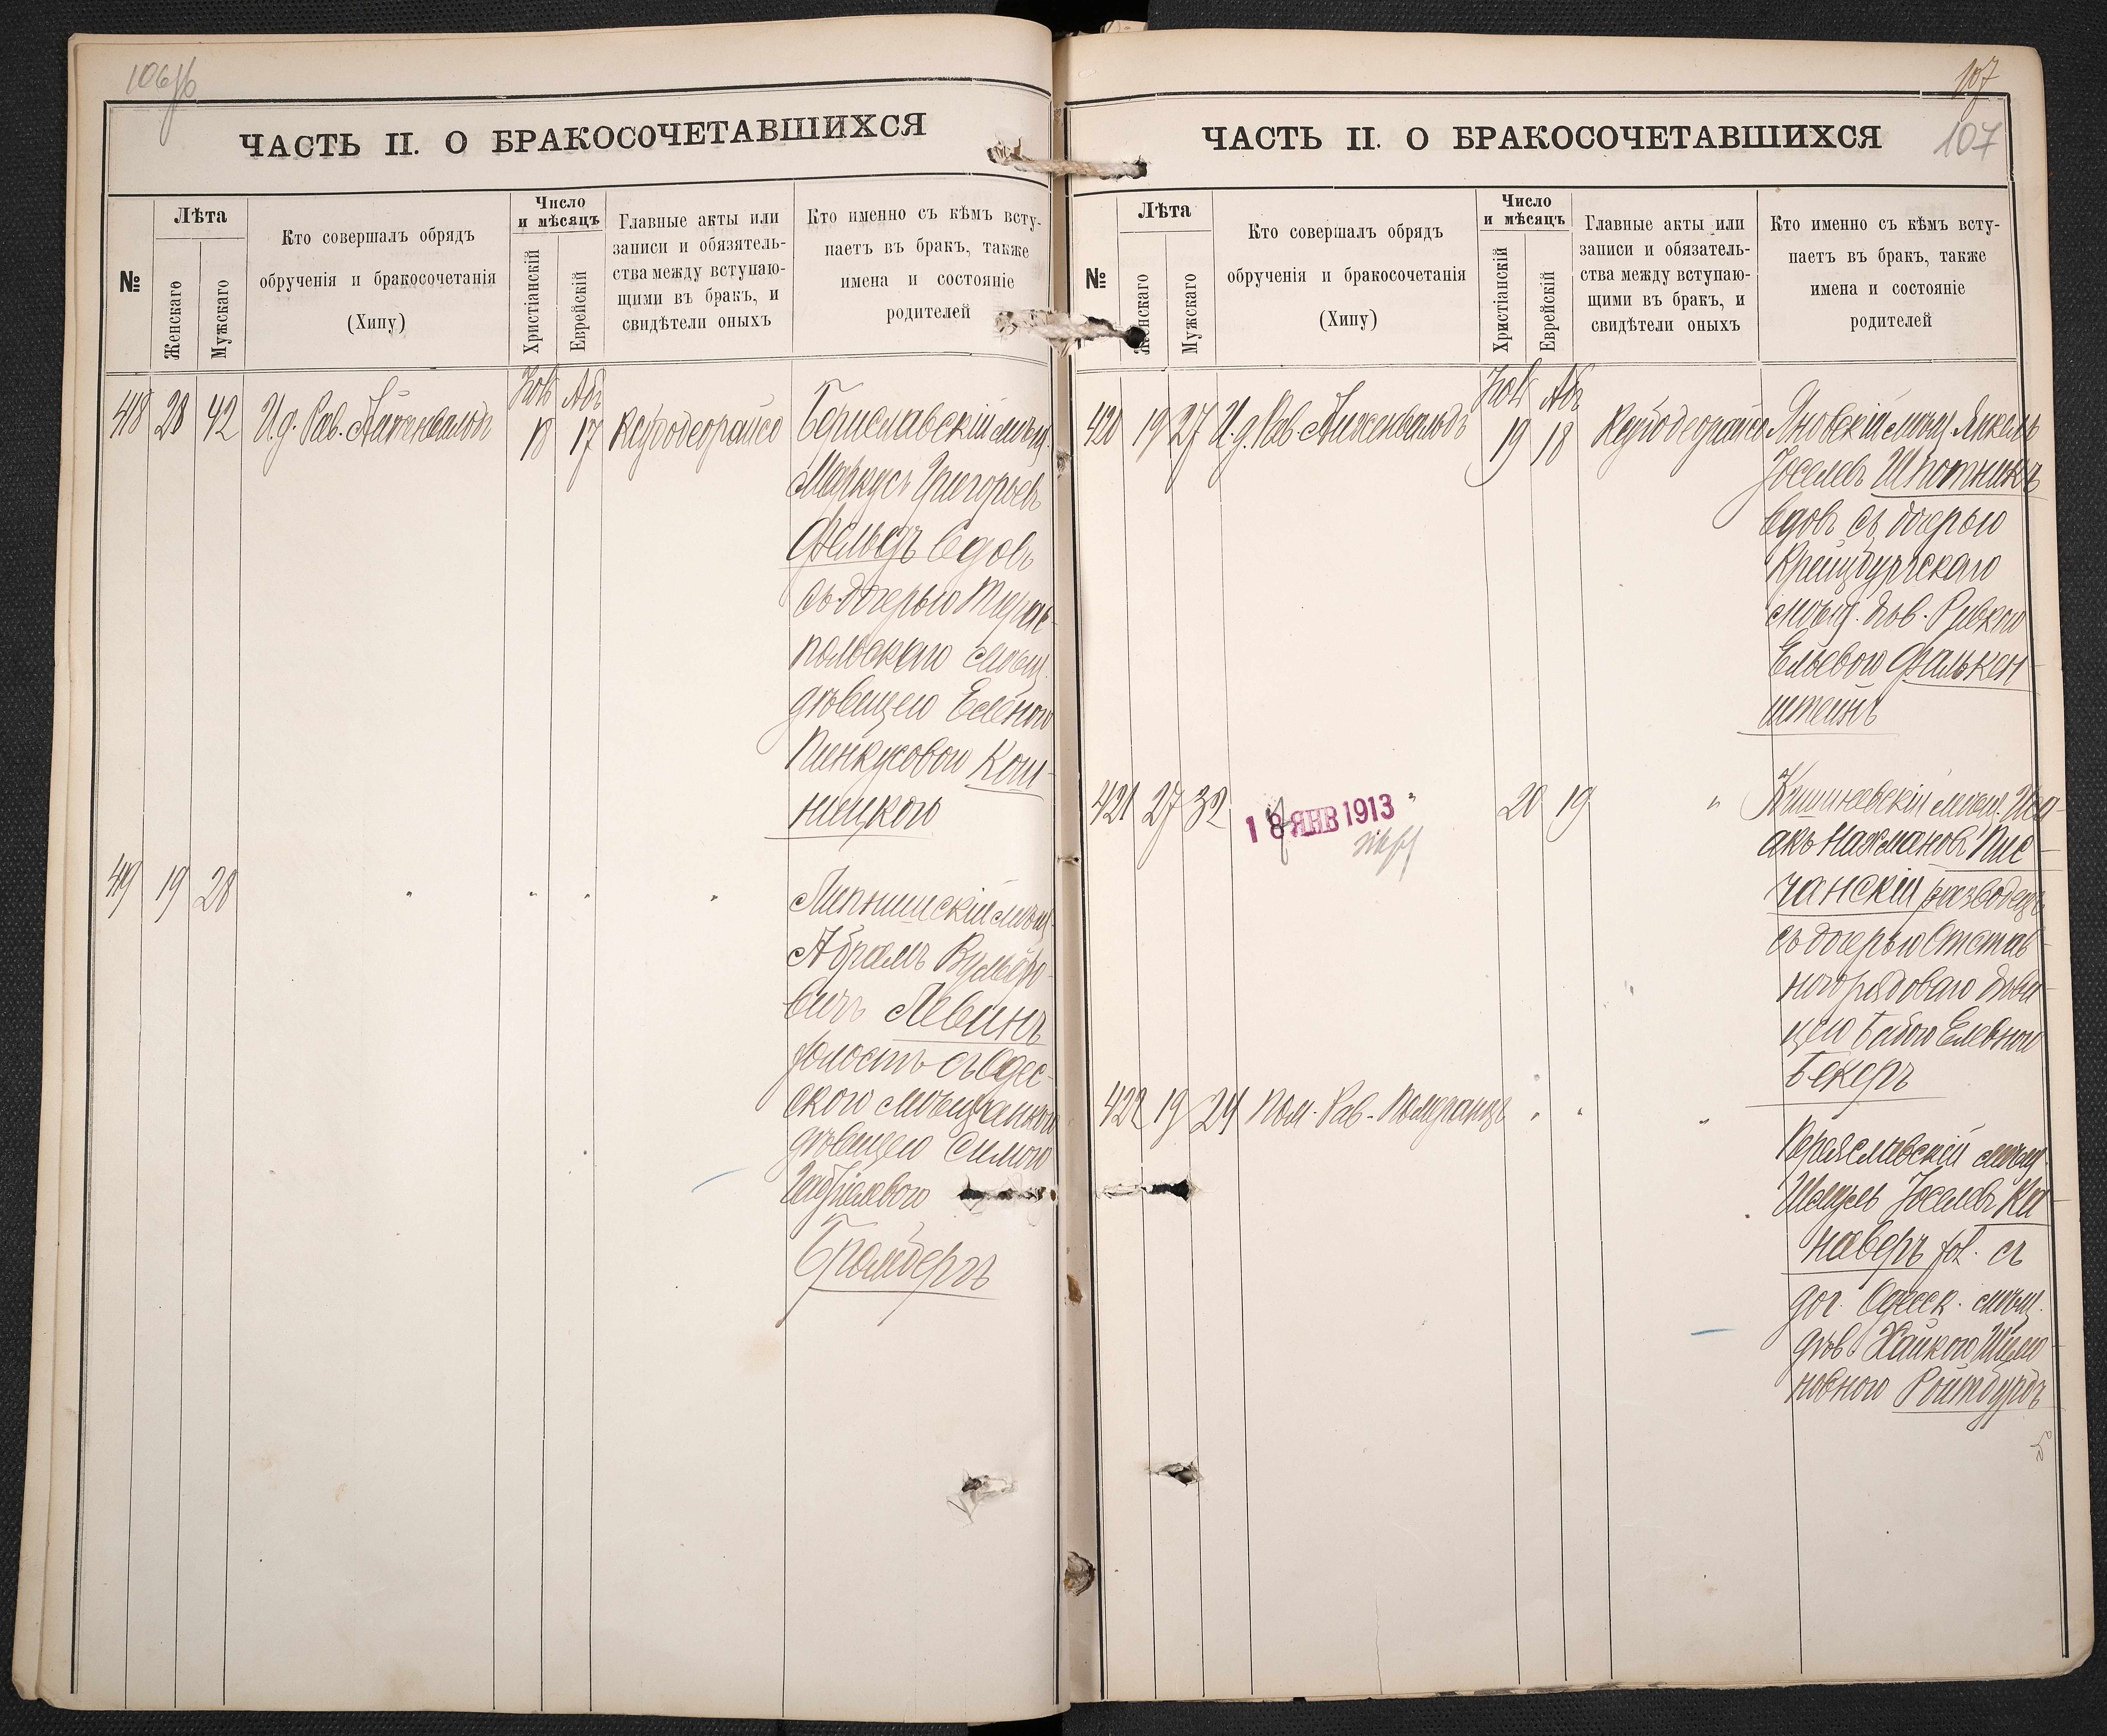 106 об
ЧАСТЬ II. О БРАКОСОЧЕТАВШИХСЯ
№
Лѣта
Женскаго
Мужскаго
Кто совершалъ обрядъ
обрученія и бракосочетанія
(Хипу)
Число
и мѣсяцъ
Христіанскій
Еврейскій
Главные акты или
записи и обязятель-
ства между вступаю-
щими въ бракъ, и
свидѣтели оныхъ
Кто именно съ кѣмъ всту-
паетъ въ бракъ, также
имена и состояніе
родителей
418 28 42 И.д. Рав. Айхенвальдъ
18 17
Бериславскій мѣщ.
Маркусъ Григорьевъ
Фельдъ вдовъ
съ дочерью Тирас-
польскаго мѣщ.
дѣвицею Еленою
Пинкусовою Кош-
ницкого
419 19 28 " " " "
Липнишскій мѣщ.
Абрамъ Вульфо-
вичъ Левинъ
холостъ съ Одес-
скою мѣщанкою
дѣвицею Симою
Бромбергъ
107
107
ЧАСТЬ II. О БРАКОСОЧЕТАВШИХСЯ
№
Лѣта
Женскаго
Мужскаго
Кто совершалъ обрядъ
обрученія и бракосочетанія
(Хипу)
Число
и мѣсяцъ
Христіанскій
Еврейскій
Главные акты или
записи и обязатель-
ства между вступаю-
щими въ бракъ, и
свидѣтели оныхъ
Кто именно съ кѣмъ всту-
паетъ въ бракъ, также
имена и состояніе
родителей
420 19 27 И.д. Рав. Айхенвальдъ
19 18
Яновскій мѣщ. Янкель
Іоселевъ Шпотникъ
вдовъ съ дочерью
Крейцбургскаго
мѣщ. дѣв. Ривкою
Ельевою Фалькен-
штейнъ
421 27 32 " 20 19 "
18 ЯНВ 1913
Кишиневскій мѣщ. Иса-
акъ Нахмановъ Пис-
чанскій разведец
съ дочерью Отстав-
ного рядового дѣви-
цею Бейлою Елевною
Бекеръ
422 19 24 Пом. Рав. Померанцъ " " "
Переяславскій мѣщ.
Шмуль Іоселевъ Ка-
неверъ хол. съ
доч. Одесск. мѣщ.
дѣв. Хайкою Шимо-
новною Ройтбурдъ